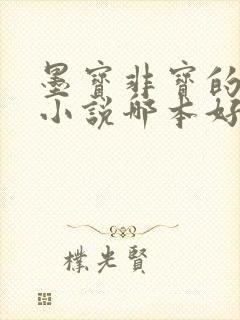 墨寶非寶的
小說哪本好
樸光賢